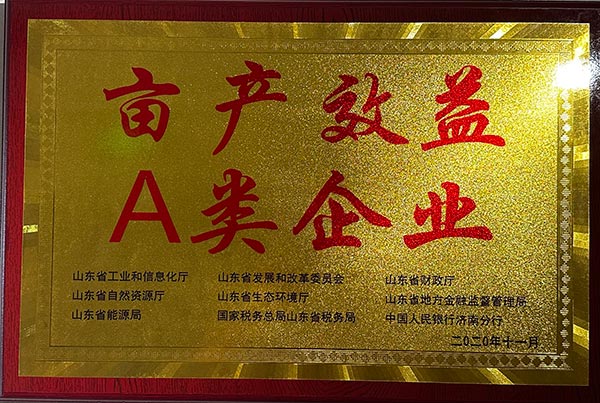 亩产效益
A类企业
山东省工业和信息化厅 山东省发展和改革委员会 山东省财政厅
山东省自然资源厅 山东省生态环境厅 山东省地方金融监督管理局
山东省能源局 国家税务总局山东省税务局 中国人民银行济南分行
二〇二〇年十一月